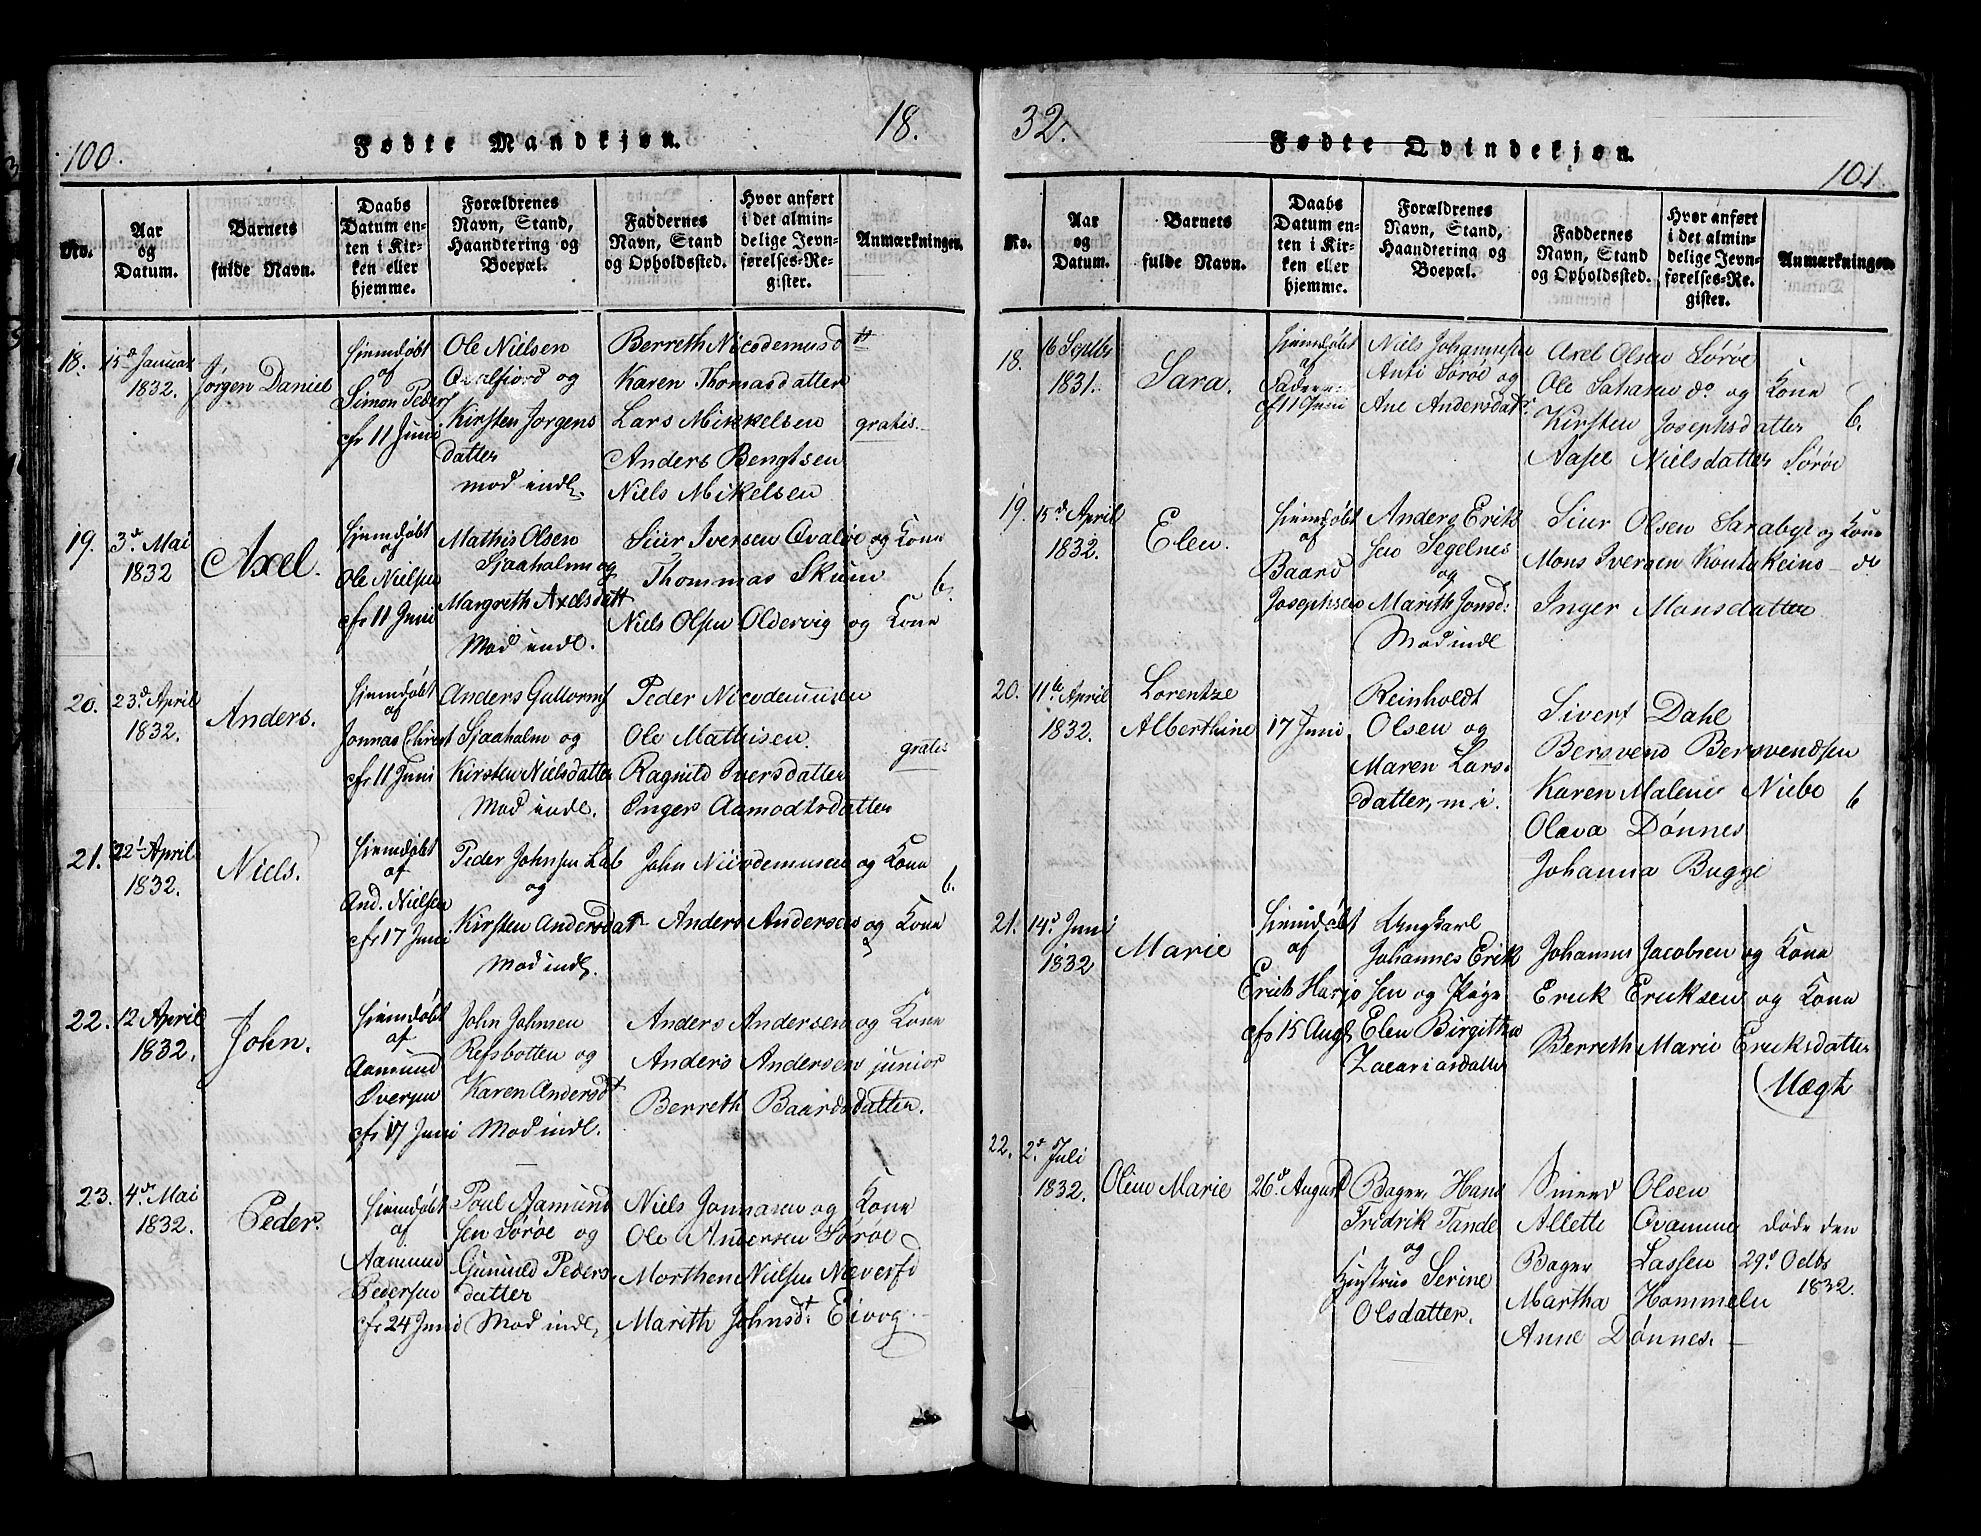 100.
Fødte Mandkjøn.
18.
No.
Aar
og
Datum.
Barnets
fulde Navn.
Daabs
Datum en-
ten i Kir-
ken eller
hjemme.
Forældrenes
Navn, Stand,
Haandtering og
Boepæl.
Faddernes
Navn, Stand
og Opholdssted.
Hvor anført
i det almin-
delige Jevn-
førelses-Re-
gister.
Anmærkninger.
18.
15d Januar
1832.
Jørgen Daniel
hiemdøbt
af
Simon Peders
cfr 11 Juni
Ole Nielsen
Qvalfiord og
Kirsten Jorgens
datter
mod indl.
Berreth Nicodemusdtr
Karen Thomasdatter
Lars Mikkelsen
Anders Bengtsen
Niels Mikelsen
gratis.
19.
3d Mai
1832
Axel.
hiemdøbt
af
Ole Nielsen
cfr 11 Juni
Mathis Olsen
Sjaaholm og
Margreth Axelsdatt
Mod indl.
Siur Iversen Qvaløe og Kone
Thommas Skum
Niels Olsen Oldervig og Kone
6.
20.
23d April
1832.
Anders.
hiemdøbt
af
Jonnas Christ
cfr 11 Juni
Anders Guttorms
Sjaaholm og
Kirsten Nielsdatter
Mod indl.
Peder Nicodemusen
Ole Mathisen.
Ragnild Iversdatter
Inger Aamodtsdatter
gratis
21.
22d April
1832.
Niels.
hiemdøbt
af
And. Nielsen
cfr 17 Juni
Peder Johnsen Lab
og
Kirsten Andersdat
Mod indl.
John Nicodemusen og Kone
Anders Andersen og Kone
6.
22.
12 April
1832.
John.
hiemdøbt
af
Aamund
Iversen
cfr 17 Juni
John Johnsen
Refsbotten og
Karen Andersdt
Mod indl.
Anders Andersen og Kone
Anders Andersen junior
Berreth Baardsdatter.
23.
4de Mai
1832.
Peder.
hiemdøbt
af
Aamund
Pedersen
cfr 24 Juni
Poul Aamund
sen Sørøe og
Gunild Peders
datter
Mod indl.
Niels Jonnasen og Kone
Ole Andersen Sørøe
Morthen Nielsen Næverfd
Marith Johnsdt. Eivog
32.
Fødte Qvindekjøn.
101
No.
Aar
og
Datum.
Barnets
fulde Navn.
Daabs
Datum en-
ten i Kir-
ken eller
hjemme.
Forældrenes
Navn, Stand,
Haandtering og
Boepæl.
Faddernes
Navn, Stand
og Opholdssted.
Hvor anført
i det almin-
delige Jevn-
førelses-Re-
gister.
Anmærkninger.
18.
16 Septbr
1831.
Sara.
hiemdøbt
af
Faderen
cfr 11 Juni
Niels Johannesen
Anti Sørøe og
Ane Andersdatr.
Axel Olsen Sørøe
Ole Saharasen do og Kone
Kirsten Josephsdatter
Aasel Nielsdatter Sørøe
6.
19.
15d April
1832.
Elen.
hiemdøbt
af
Baard
Josephsen
Anders Erik
sen Segelnes
og
Marith Jonsd:
Mod indl
Siur Olsen Sarabye og Kone
Mons Iversen Koutokeino do
Inger Monsdatter
20.
11te April
1832.
Lorentze
Alberthine
17 Juni
Reinholdt
Olsen og
Maren Lars-
datter, m i.
Sivert Dahl
Bersvend Bersvendsen
Karen Malene Niebe
Olava Dønnes
Johanna Bugge
6
21.
14d Juni
1832
Marie
hiemdøbt
af
Erich Harjo
cfr 15 Augs
Ungkarl
Johannes Erik
sen og Pige
Elen Birgitha
Zacariasdatter
Johannes Jacobsen og Kone
Erick Ericksen og Kone
Berreth Marie Ericksdatter
Mægte
22.
2d Juli
1832.
Oline Marie
26d August
Bager, Hans
Fridrik Tande
og
Hustrue Serine
Olsdatter.
Smed Olsen
Allette Qvamme
Bager Lassen
Martha Hammeln
Anne Dønnes.
døde den
29d Octbr
1832.